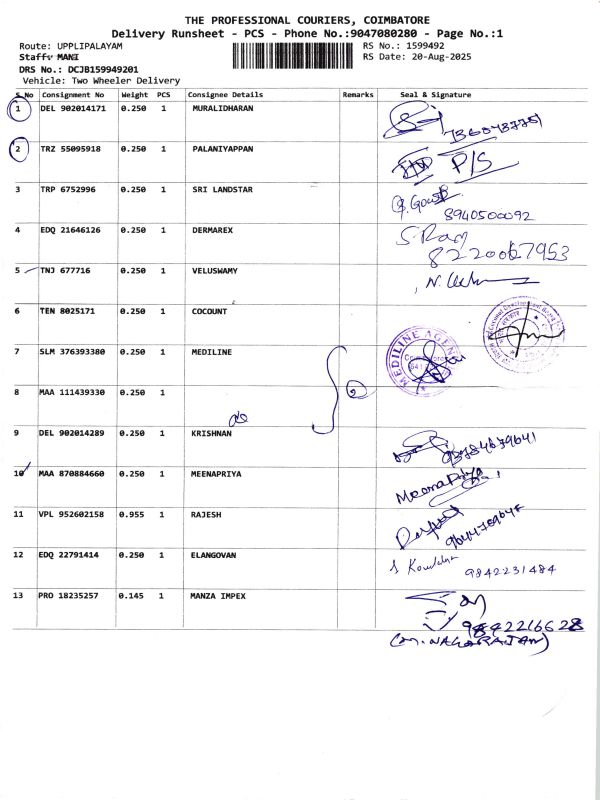 THE PROFESSIONAL COURIERS, COIMBATORE
Delivery Runsheet - PCS - Phone No.:9047080280 - Page No.:1
Route: UPPLIPALAYAM
RS No.: 1599492
Staff: MANI
RS Date: 20-Aug-2025
DRS No.: DCJB159949201
Vehicle: Two Wheeler Delivery
S.No Consignment No Weight PCS Consignee Details Remarks Seal & Signature
1 DEL 902014171 0.250 1 MURALIDHARAN
2 TRZ 55095918 0.250 1 PALANIYAPPAN P/S
3 TRP 6752996 0.250 1 SRI LANDSTAR
8940500092
4 EDQ 21646126 0.250 1 DERMAREX S. Ram
8220067953
5 TNJ 677716 0.250 1 VELUSWAMY
6 TEN 8025171 0.250 1 COCOUNT
7 SLM 376393380 0.250 1 MEDILINE MEDILINE AGEN
8 MAA 111439330 0.250 1
do
9 DEL 902014289 0.250 1 KRISHNAN
10 MAA 870884660 0.250 1 MEENAPRIYA Meenapriya
11 VPL 952602158 0.955 1 RAJESH
12 EDQ 22791414 0.250 1 ELANGOVAN
9842231484
13 PRO 18235257 0.145 1 MANZA IMPEX
9842216628
(M. NAGARAJAN)